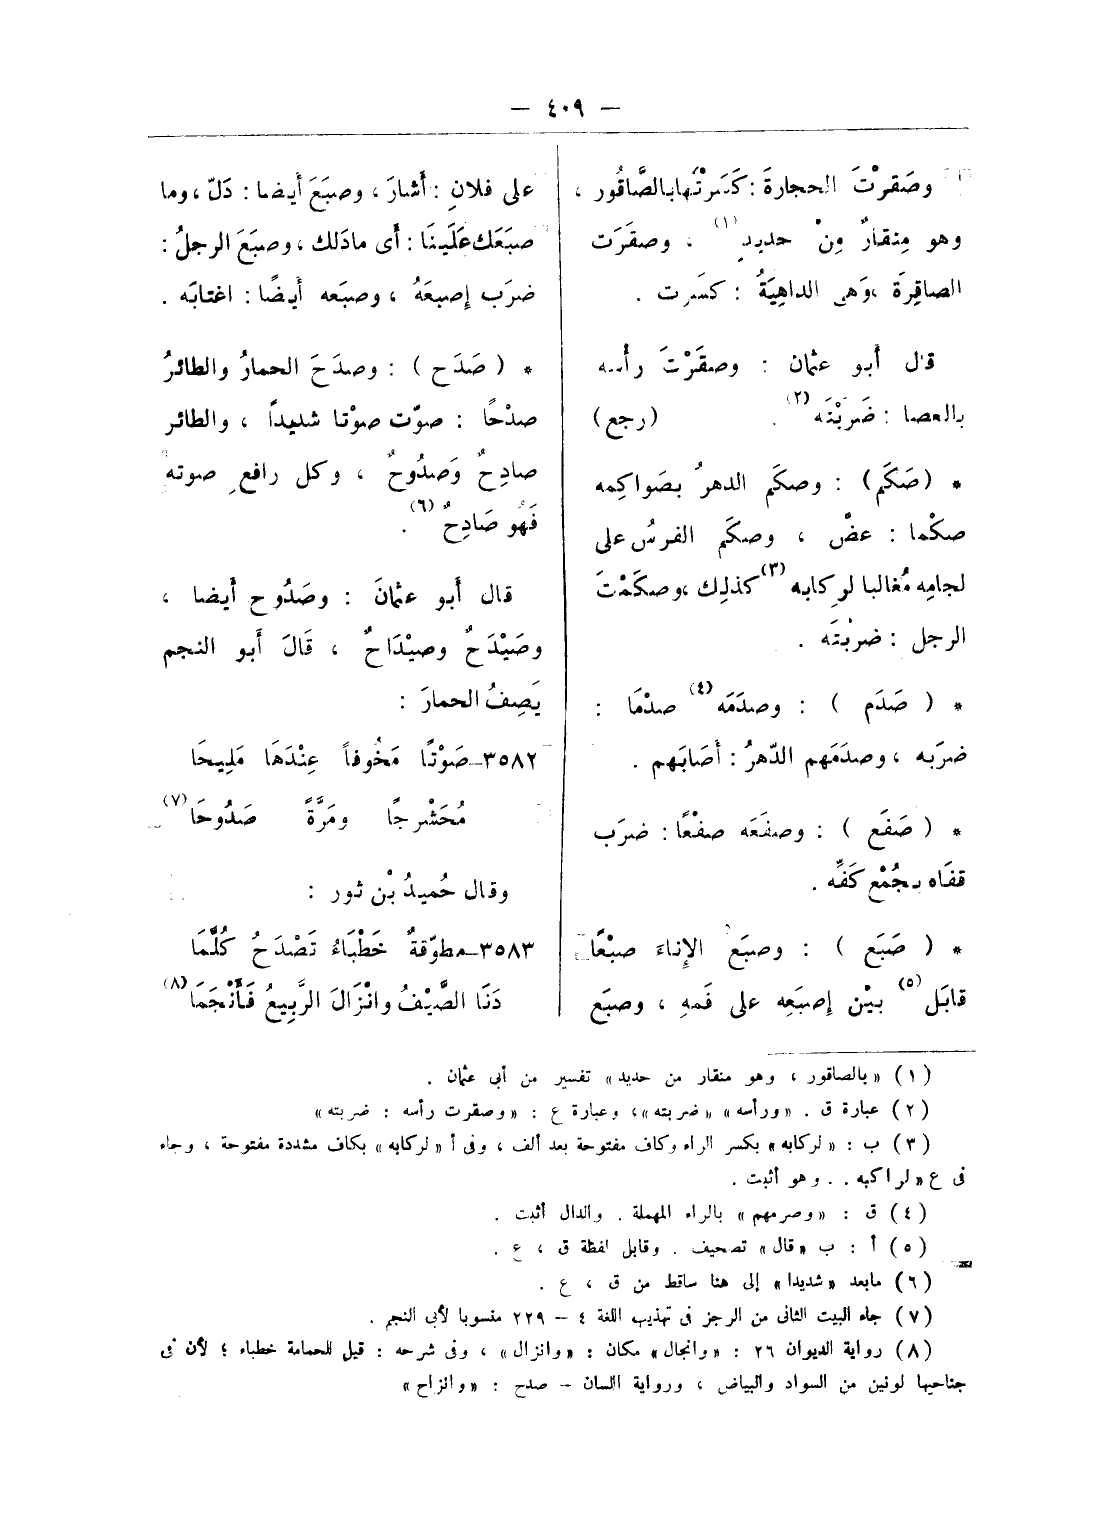 — ٤٠٩ —
وصَقرْتَ الحجارةَ : كَسَرْتُها بالصَّاقُور ،
وهو مِنقارٌ مِنْ حديدٍ (١) ، وصقَرَت
الصاقِرةَ ، وَهى الداهِيَةُ : كسَرت .
قال أبو عثمان : وصقَرْتَ رأسه
بالعصا : ضَرَبْتَه (٢) . (رجع)
* (صَكَم) : وصكَم الدهرُ بصَواكِمه
صكْما : عضَّ ، وصكَم الفرسُ على
لجامِه مُغالبا لِركابه (٣) كذلِك ، وصكَمْتَ
الرجل : ضربْتَه .
* ( صَدَم ) : وصدَمَه (٤) صدْمَا :
ضرَبه ، وصدَمَهم الدّهرُ : أصَابَهم .
* ( صَفَع ) : وصفَعَه صفْعًا : ضرَب
قفَاه بجُمْع كَفِّه .
* ( صَبَع ) : وصبَع الإناءَ صبْعًا
قابَل (٥) بيْن إصبَعِه على فَمهِ ، وصبَع
على فلانٍ : أَشارَ ، وصبَعَ أيضا : دَلّ ، وما
صبَعَك عَلَينَا : أى مادَلك ، وصبَعَ الرجلُ :
ضرَب إصبعَهُ ، وصبَعه أيضًا : اغتابَه .
* ( صَدَح ) : وصدَحَ الحمارُ والطائرُ
صدْحًا : صوّت صوْتا شديدًا ، والطائر
صادِحٌ وَصدُوحٌ ، وكل رافعٍ صوته
فَهُو صَادِحٌ (٦) .
قال أَبو عثمانَ : وصَدُوح أيضا ،
وصَيْدَحٌ وصيْدَاحٌ ، قَالَ أَبو النجم
يَصِفُ الحمارَ :
٣٥٨٢ـ صَوْتًا مَخُوفاً عِنْدَهَا مَلِيحَا
مُحَشْرجًا ومَرَّةً صَدُوحَا (٧)
وقال حُميدُ بْن ثور :
٣٥٨٣ـ مطوّقةٌ خَطْبَاءُ تَصْدَحُ كُلَّمَا
دَنَا الصَّيْفُ وانْزَالَ الرَّبِيعُ فَأَنْجَمَا (٨)
(١) «بالصاقور ، وهو منقار من حديد» تفسير من أبى عثمان .
(٢) عبارة ق . «ورأسه» «ضربته» ، وعبارة ع : «وصقرت رأسه : ضربته»
(٣) ب : «لركابه» بكسر الراء وكاف مفتوحة بعد ألف ، وفى أ «لركابه» بكاف مشددة مفتوحة ، وجاء
فى ع «لراكبه . . وهو أثبت .
(٤) ق : «وصرمهم» بالراء المهملة . والدال أثبت .
(٥) أ : ب «قال» تصحيف . وقابل لفظة ق ، ع .
(٦) مابعد «شديدا» إلى هنا ساقط من ق ، ع .
(٧) جاء البيت الثانى من الرجز فى تهذيب اللغة ٤ – ٢٢٩ منسوبا لأبى النجم .
(٨) رواية الديوان ٢٦ : «وانجال» مكان : «وانزال» ، وفى شرحه : قيل للحمامة خطباء ؛ لأن فى
جناحيها لونين من السواد والبياض ، ورواية اللسان – صدح : «وانزاح»